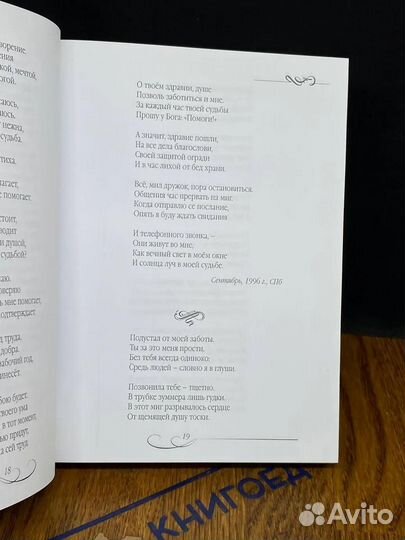 ворение
ения
кой, мечтой,
огой.
аюсь,
юсь.
нежна,
судьба.
тиха.
агает,
не помогает.
стоит,
водит
и душой,
судьбой?
каю.
оверяю
ь мне помогает,
подтверждает.
а труда,
добра.
рабочий год,
инесёт.
бою будет.
воего ума
в тот момент,
ью придут.
а сей труд
18
О твоём здравии, душе
Позволь заботиться и мне.
За каждый час твоей судьбы
Прошу у Бога: «Помоги!»
А значит, здравие пошли,
На все дела благослови,
Своей защитой огради
И в час лихой от бед храни.
Всё, мил дружок, пора остановиться.
Общения час прервать на миг.
Когда отправлю се послание,
Опять я буду ждать свидания
И телефонного звонка, –
Они живут во мне,
Как вечный свет в моём окне
И солнца луч в моей судьбе.
Сентябрь, 1996 г., СПб
Подустал от моей заботы.
Ты за это меня прости,
Без тебя всегда одиноко:
Средь людей – словно я в глуши.
Позвонила тебе – тщетно.
В трубке зуммера лишь гудки.
В этот миг разрывалось сердце
От щемящей душу тоски.
19
КНИГОЕД
Avito